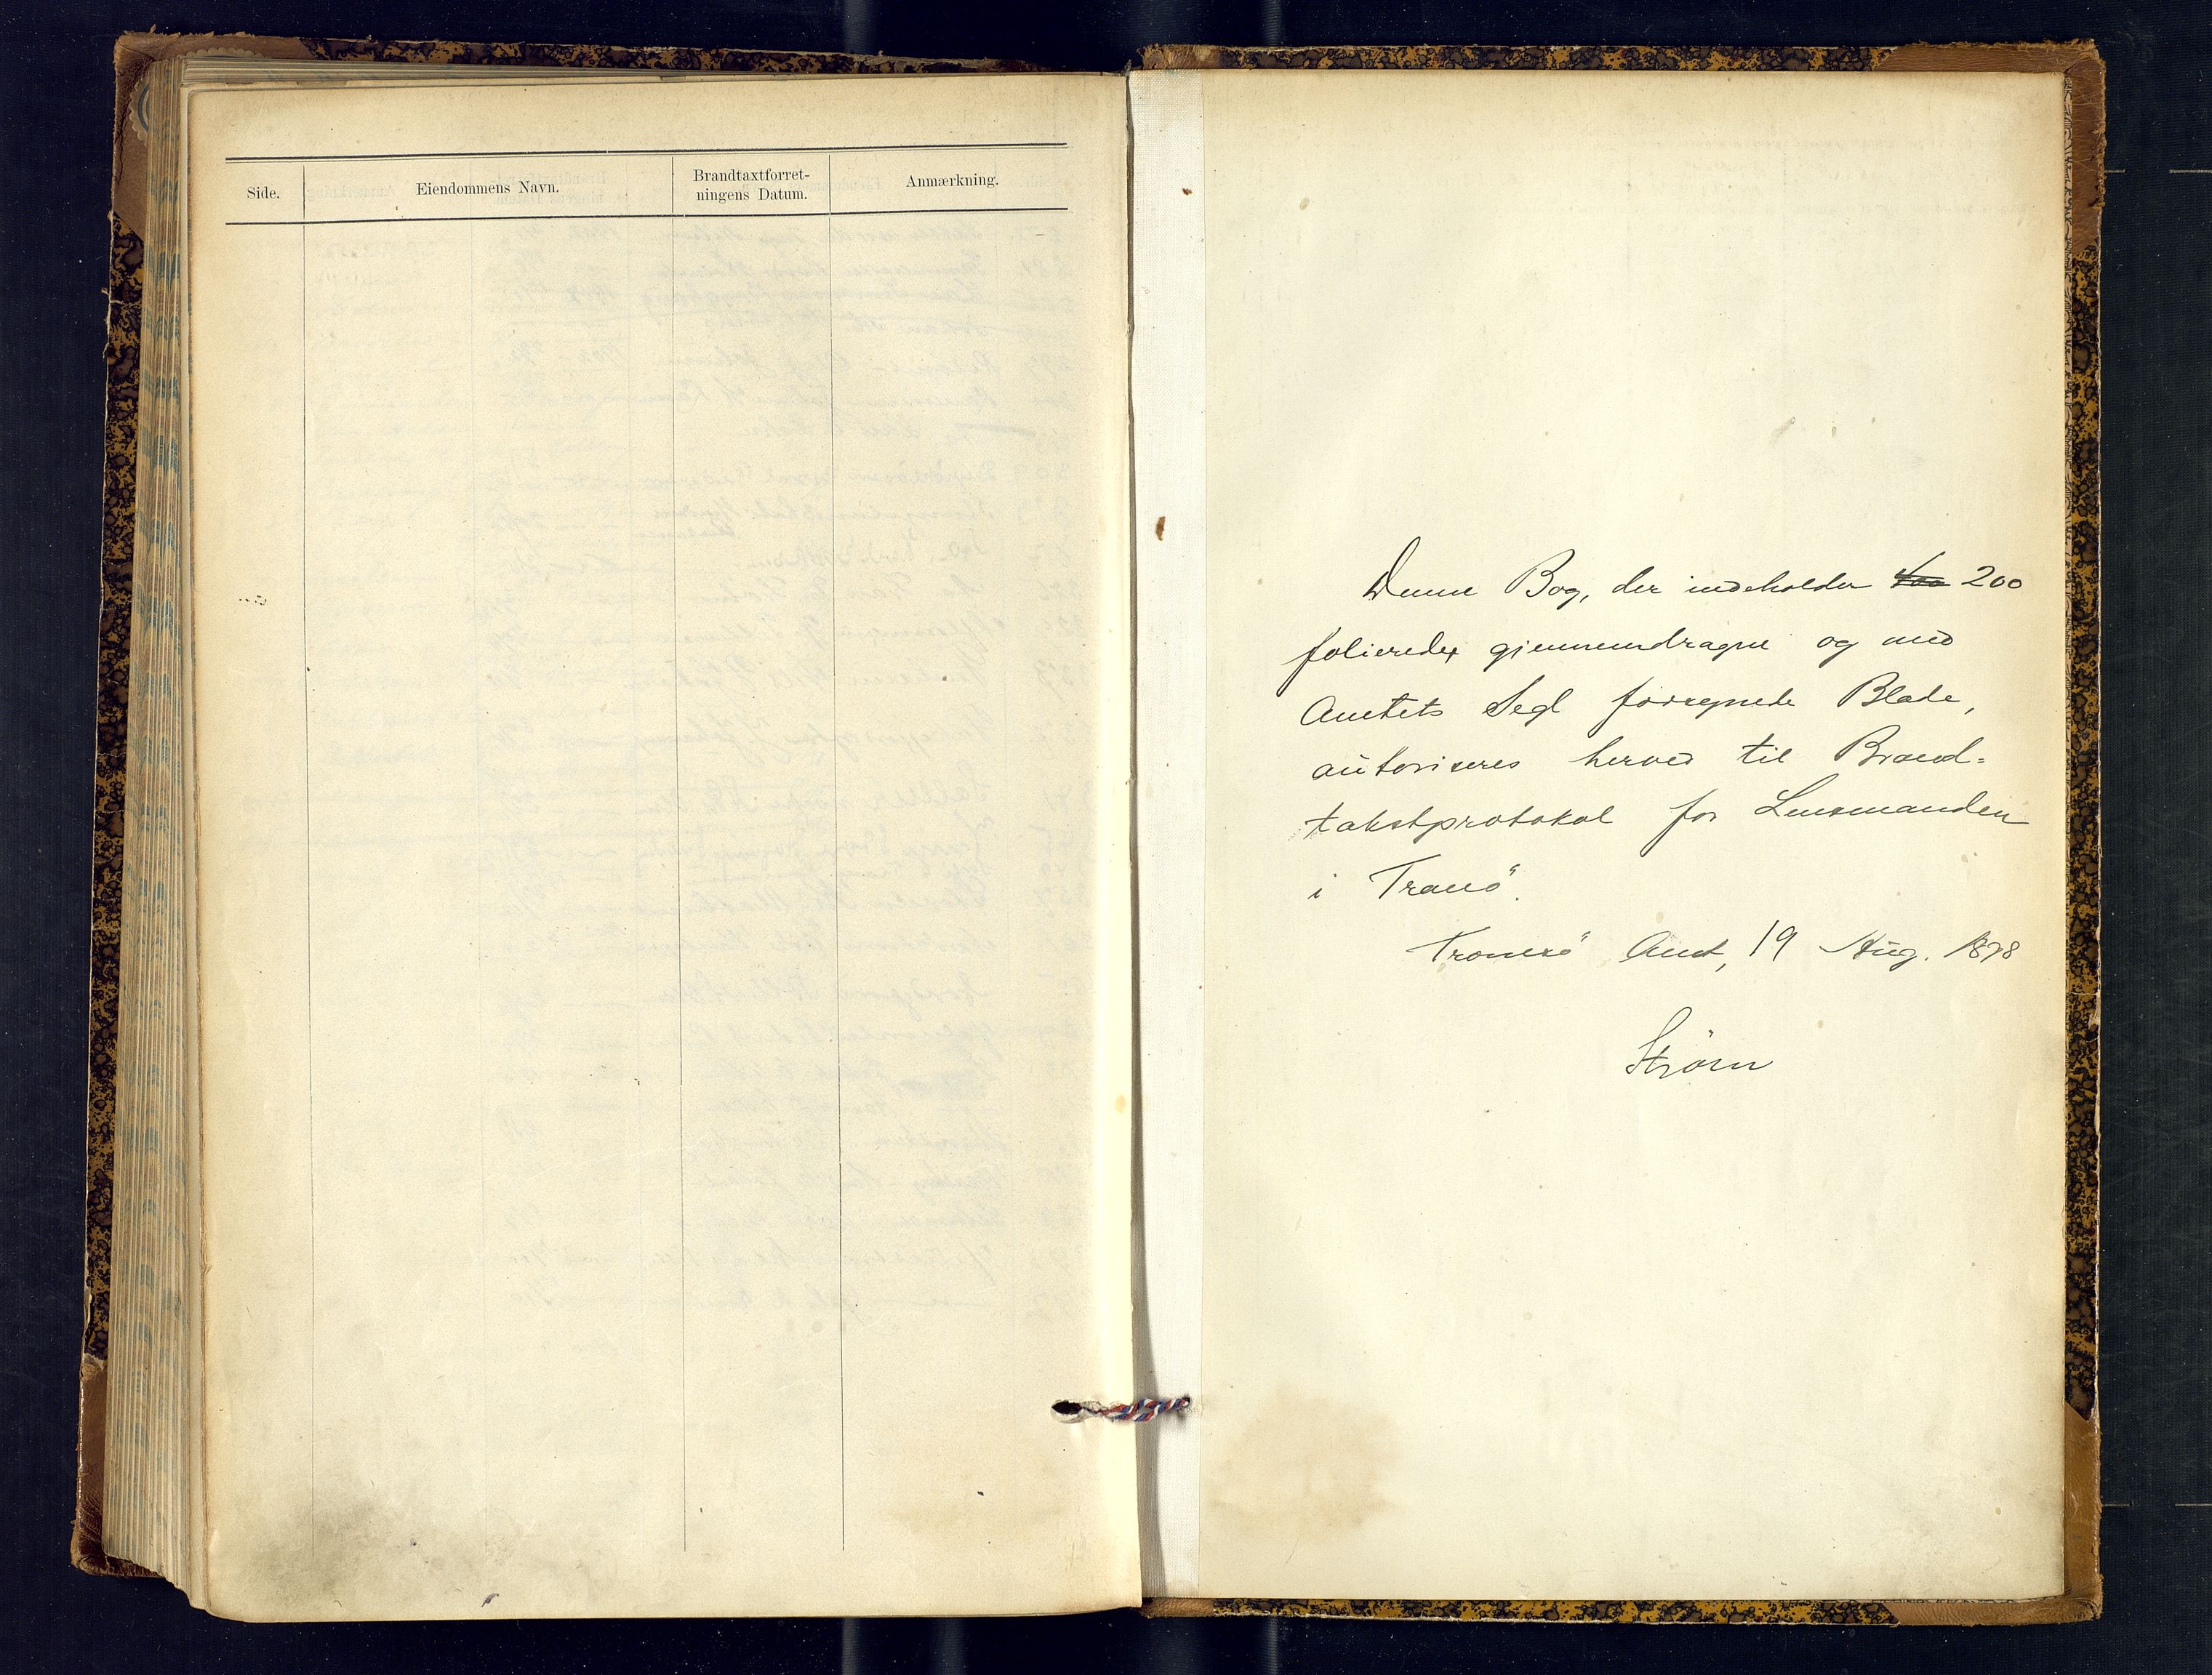 Side.
Eiendommens Navn.
Brandtaxtforret-
ningens Datum.
Anmærkning.
Denne Bog, der indeholder 200
folierede gjennemdragne og med
Amtets Segl forsynede Blade,
autoriseres herved til Brand=
takstprotokol for Lensmanden
i Tranö.
Tromsö Amt, 19 Aug. 1898
Ström